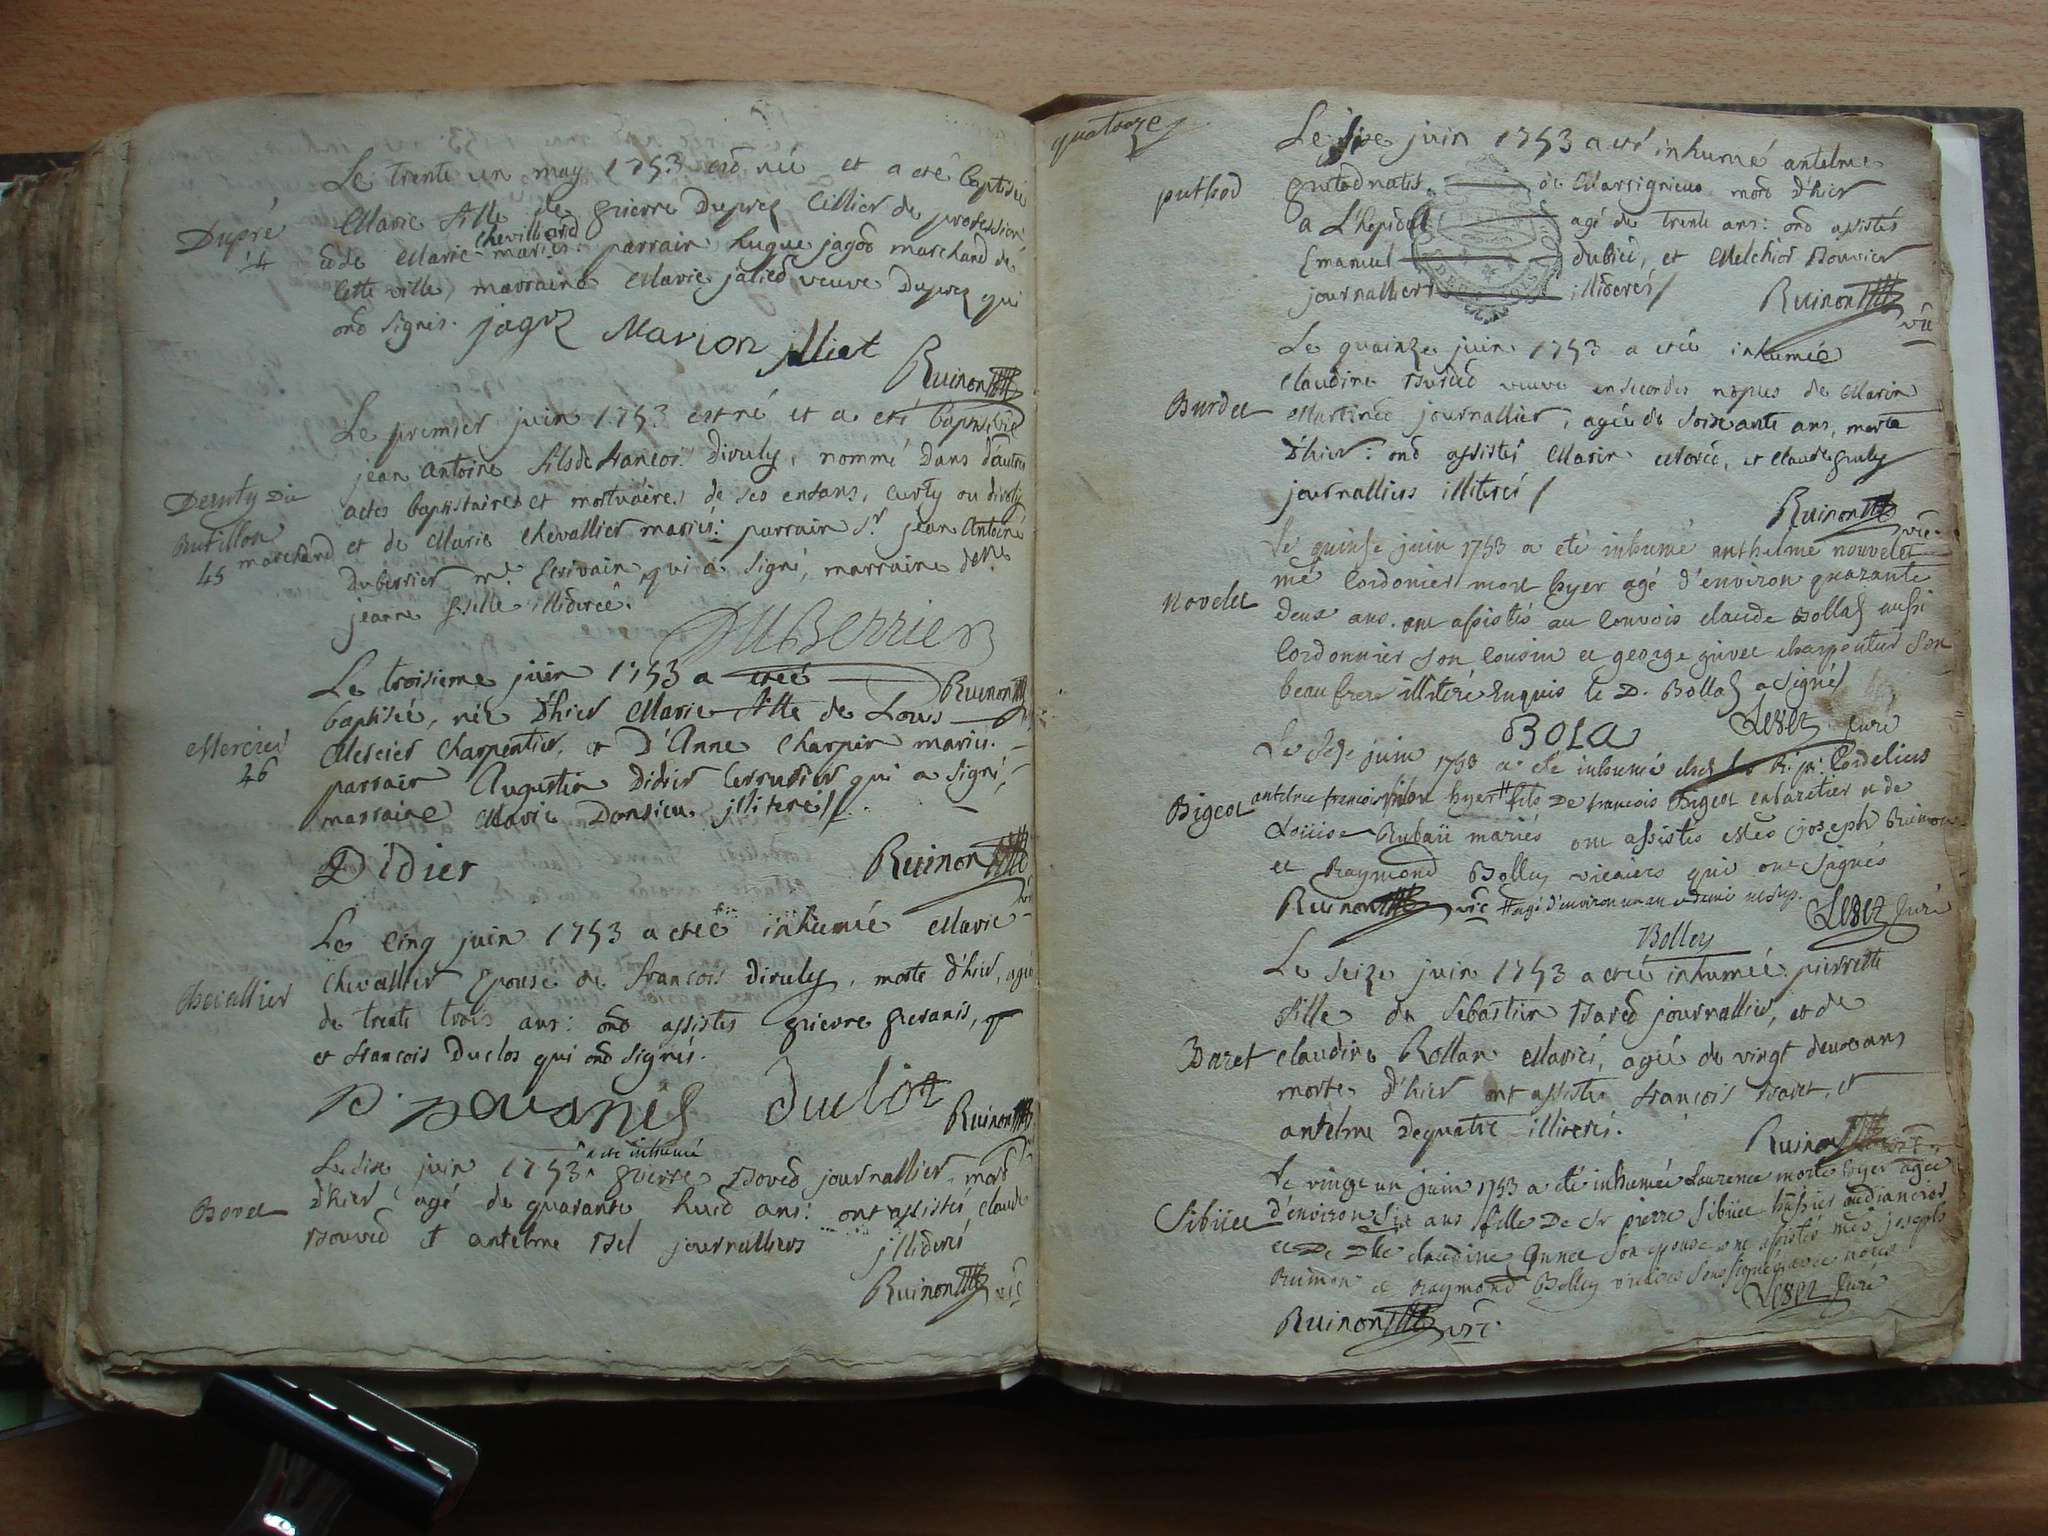 Le trente un may 1753 est née et a eté baptisée
Dupré
Marie fille de pierre Duprez Cellier de profession,
et de Marie Chevilliard mariés: parrain hugue jagot marchand de
cette ville, marraine Marie veuve Duprez qui
ont signés. Marion
Ruinon
Le premier juin 1753 est né et a eté baptisé
jean antoine fils de francois divuly, nommé dans d'autres
actes baptistaires et mortuaires de ses enfans,
45 marchand
et de Marie chevallier mariés: parrain Sr. jean Antoine
Duberrier me. Ecrivain qui a signé, marraine delle
jeanne illiterée.
DUBerrier
Le troisieme juin 1753 a etée
Ruinon
baptisée, née d'hier Marie fille de Louis
Mercier
46
Mercier charpentier, et D'Anne Charpin mariés.
parrain Augustin Didier serrurier qui a signé,
marraine Marie Donsieu illiteré/.
Didier
Ruinon
Le cinq juin 1753 a etée inhumée Marie
Chevallier
Chevallier Epouse de francois divuly, morte d'hier, agée
de trente trois ans: ont assistés pierre
et francois Duclos qui ont signés.
Ruinon
Le six juin 1753 a été inhumé pierre Bovet journallier, mort
Bovet
d'hier, agé de quarante huit ans: ont assistés claude
Bouvet et antelme Bel journalliers illiterés
Ruinon vic
quatorze
Le six juin 1753 a eté inhumé antelme
puthod
putod natif de Marsignieu mort d'hier
a L'hopital agé de trente ans: ont assistés
Emanuel dubiez, et Melchior Bouvier
journalliers illiterés/
Ruinon
vic
Le quinze juin 1753 a etée inhumée
Burdet
claudine Burdet veuve en secondes nopces de Marin
Martinet journallier, agée de soixante ans, morte
d'hier: ont assistés Marin et claude
journalliers illiterés/
Ruinon vic
Le quinse juin 1753 a eté inhumé anthelme nouvelet
Novelet
me Cordonier mort hyer agé d'environ quarante
deux ans. ont assistés au convois claude Bollaz aussi
Cordonnier son cousin et george givet charpentier son
beau frere illiteré Enquis le D. Bollaz a signé
BOLA
curé
Le seze juin 1753 a eté inhumé chez les R. p. Cordeliers
Bigeot
antelme francois mort hyer # fils De francois Bigeot cabaretier et de
Loüise Rubaü mariés ont assistés Mes joseph Ruinon
et Raymond Bolley vicaires qui ont signés
Ruinon vic # agé d'environ un an et demi
curé
Bolley
Le seize juin 1753 a etée inhumée pierrette
fille de Sebastien Baret journallier, et de
Baret
claudine Rollan Mariés, agée de vingt deux ans
morte d'hier ont assistés francois Baret, et
antelme Dequatre illiterés.
Ruinon vic
Le vingt un juin 1753 a eté inhumée Laurence morte hyer agée
Sibüet
d'environ six ans fille De Sr pierre Sibüet hussier audiancier
et De Dlle claudine Annet son epouse ont assistés Mes joseph
Ruinon et Raymond Bolley vicaires soussignés avec nous
curé
Ruinon vic.